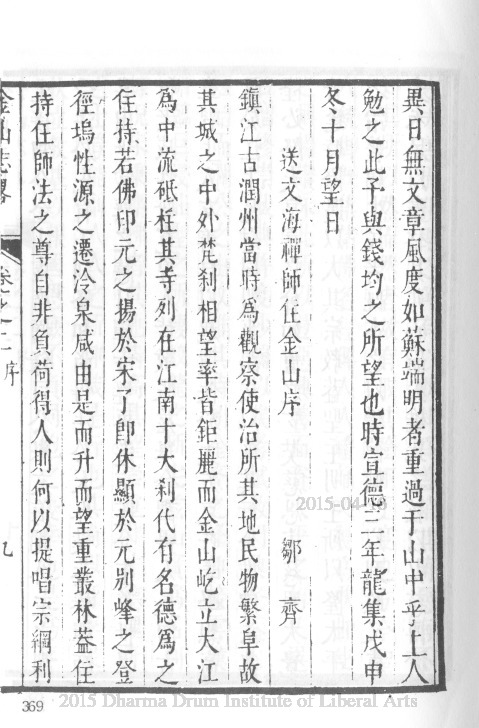 異日無文章風度如蘇端明者重過于山中乎上人
勉之此予與錢均之所望也時宣德三年龍集戊申
冬十月望日
送文海禪師住金山序
鄒齊
鎮江古潤州當時為觀察使治所其地民物繁阜故
其城之中外梵刹相望率皆鉅麗而金山屹立大江
為中流砥柱其寺列在江南十大刹代有名德為之
住持若佛印元之揚於宋了卽休顯於元別峰之登
徑塢性源之遷泠泉咸由是而升而望重叢林葢住
持任師法之尊自非負荷得人則何以提唱宗綱利
金山志畧
卷之二
序
九
2015-04-16
369
2015 Dharma Drum Institute of Liberal Arts